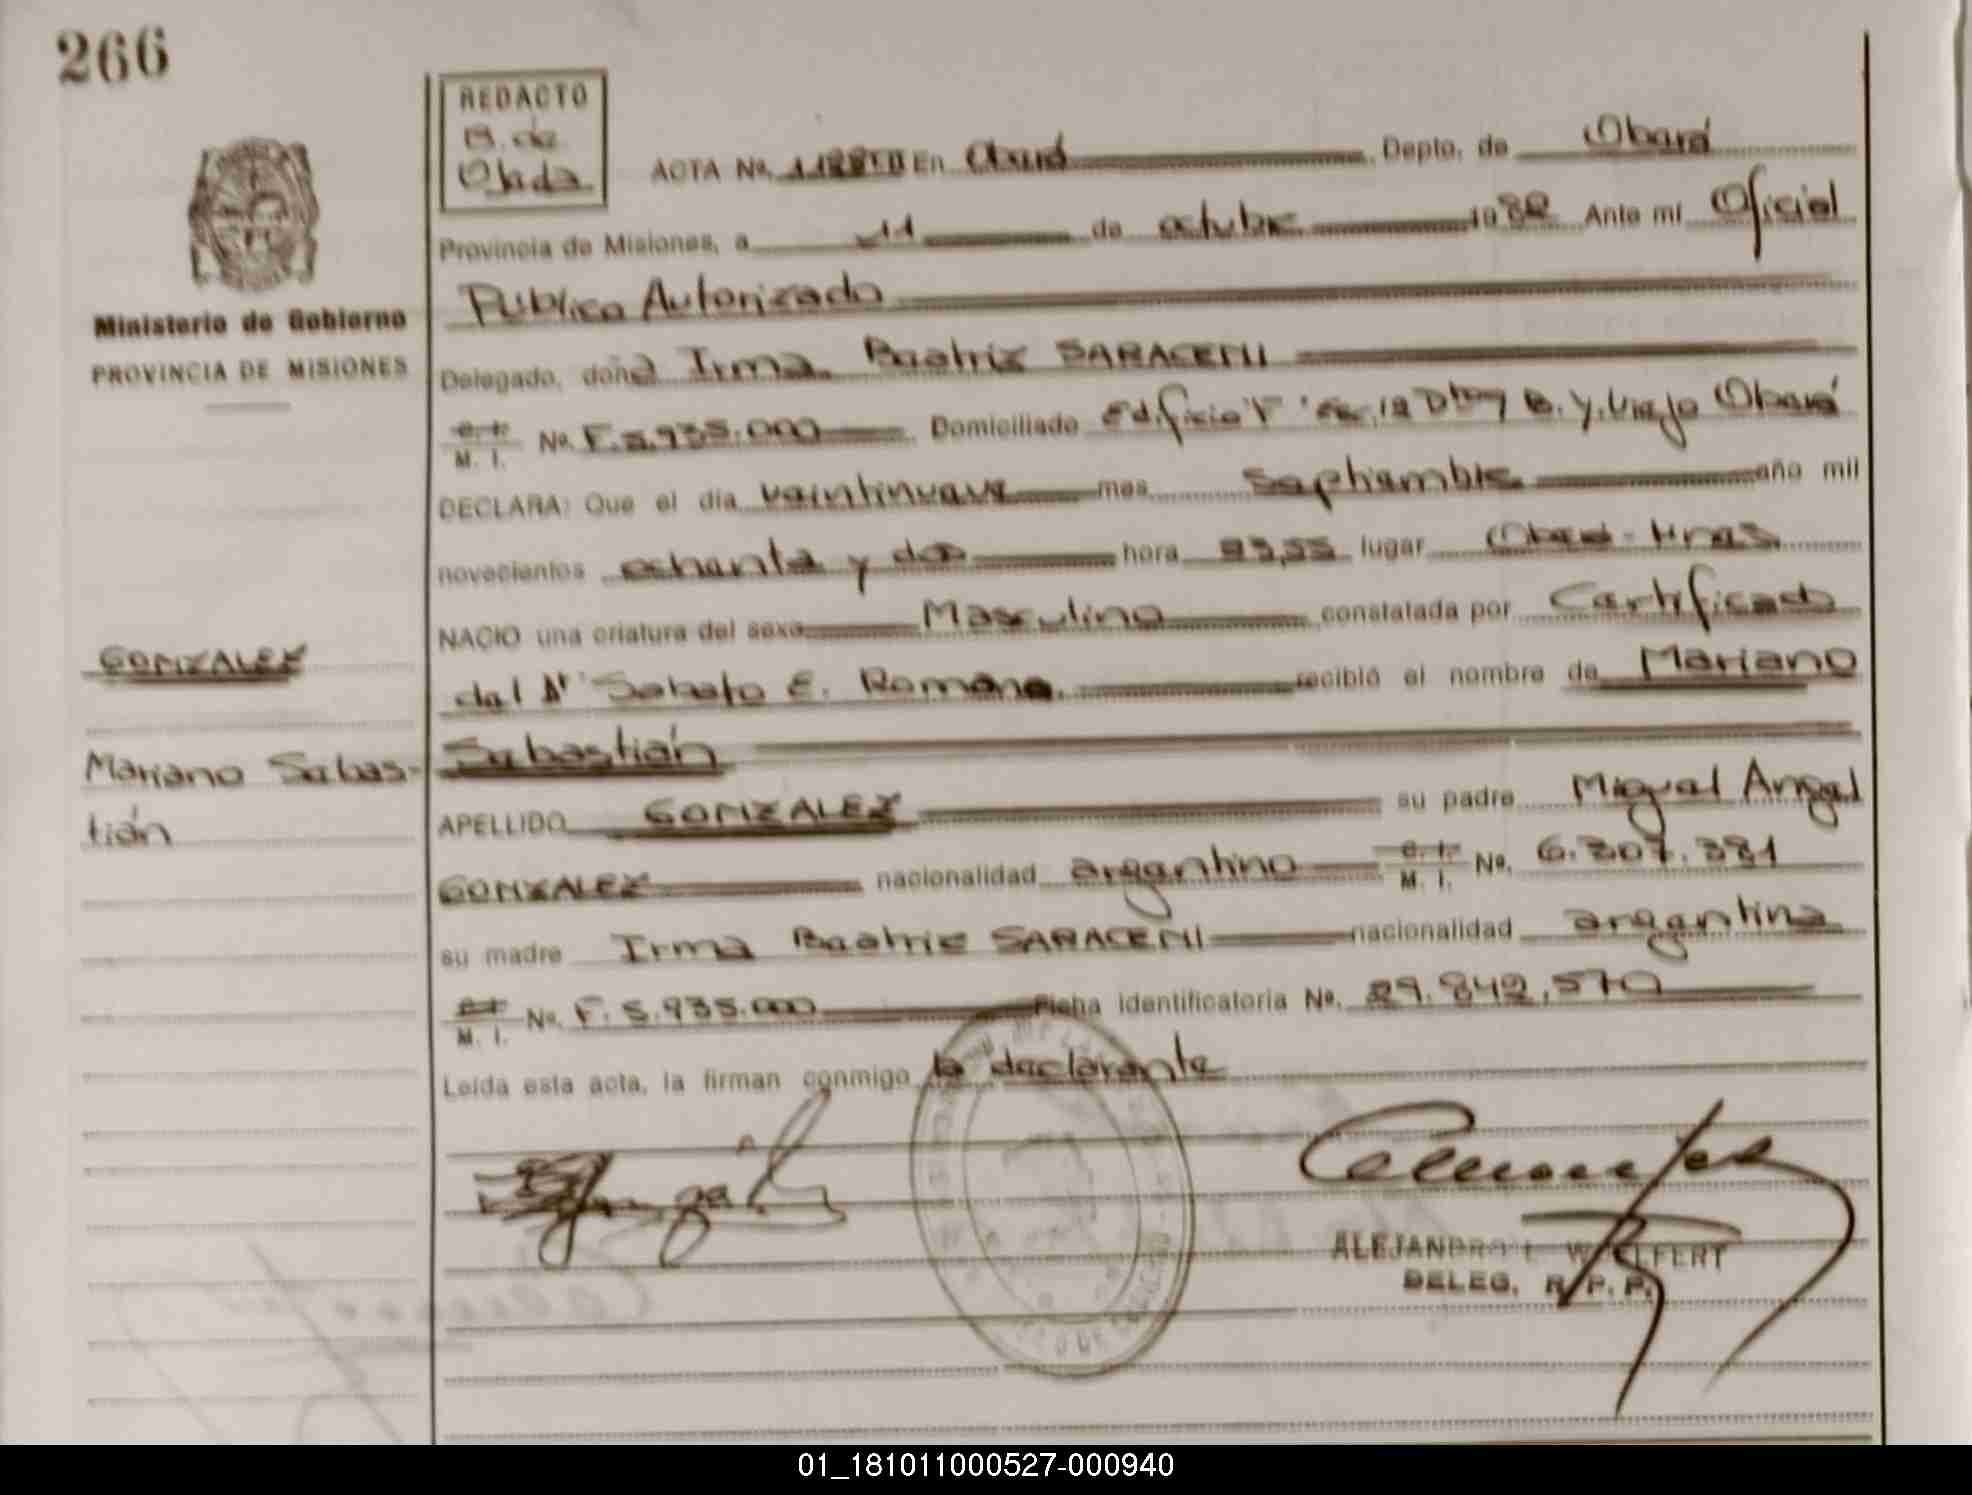 266
REDACTO
B. de
Ojeda
ACTA Nº En Oberá Depto. de Oberá
Provincia de Misiones, a 11 de octubre 1982 Ante mí Oficial
Público Autorizado
Ministerio de Gobierno
PROVINCIA DE MISIONES
Delegado, doña Irma Beatriz SARACENI
M. I. Nº F.5.935.000 Domiciliado Edificio B. Y. Viejo Oberá
DECLARA: Que el día veintinueve mes septiembre año mil
novecientos ochenta y dos hora 23,55 lugar Oberá - Mnes
NACIO una criatura del sexo Masculino constatada por Certificado
del Dr Sabato E. Romano recibió el nombre de Mariano
Sebastián
GONZALEZ
Mariano Sebas-
tián
APELLIDO GONZALEZ su padre Miguel Angel
GONZALEZ nacionalidad argentino C. I. M. I. Nº. 6.307.381
su madre Irma Beatriz SARACENI nacionalidad argentina
M. I. Nº. F. 5.935.000 Ficha identificatoria Nº. 29.842.570
Leída esta acta, la firman conmigo la declarante
ALEJANDRO
DELEG. R. P. P.
01_181011000527-000940